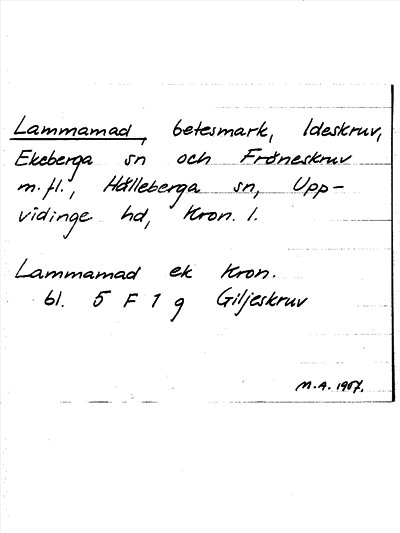 Lammamad, betesmark, Ideskruv,
Ekeberga sn och Fröneskruv
m.fl., Hälleberga sn, Upp-
vidinge hd, Kron. l.
Lammamad ek Kron.
bl. 5 F 1 g Giljeskruv
M.A. 1967.